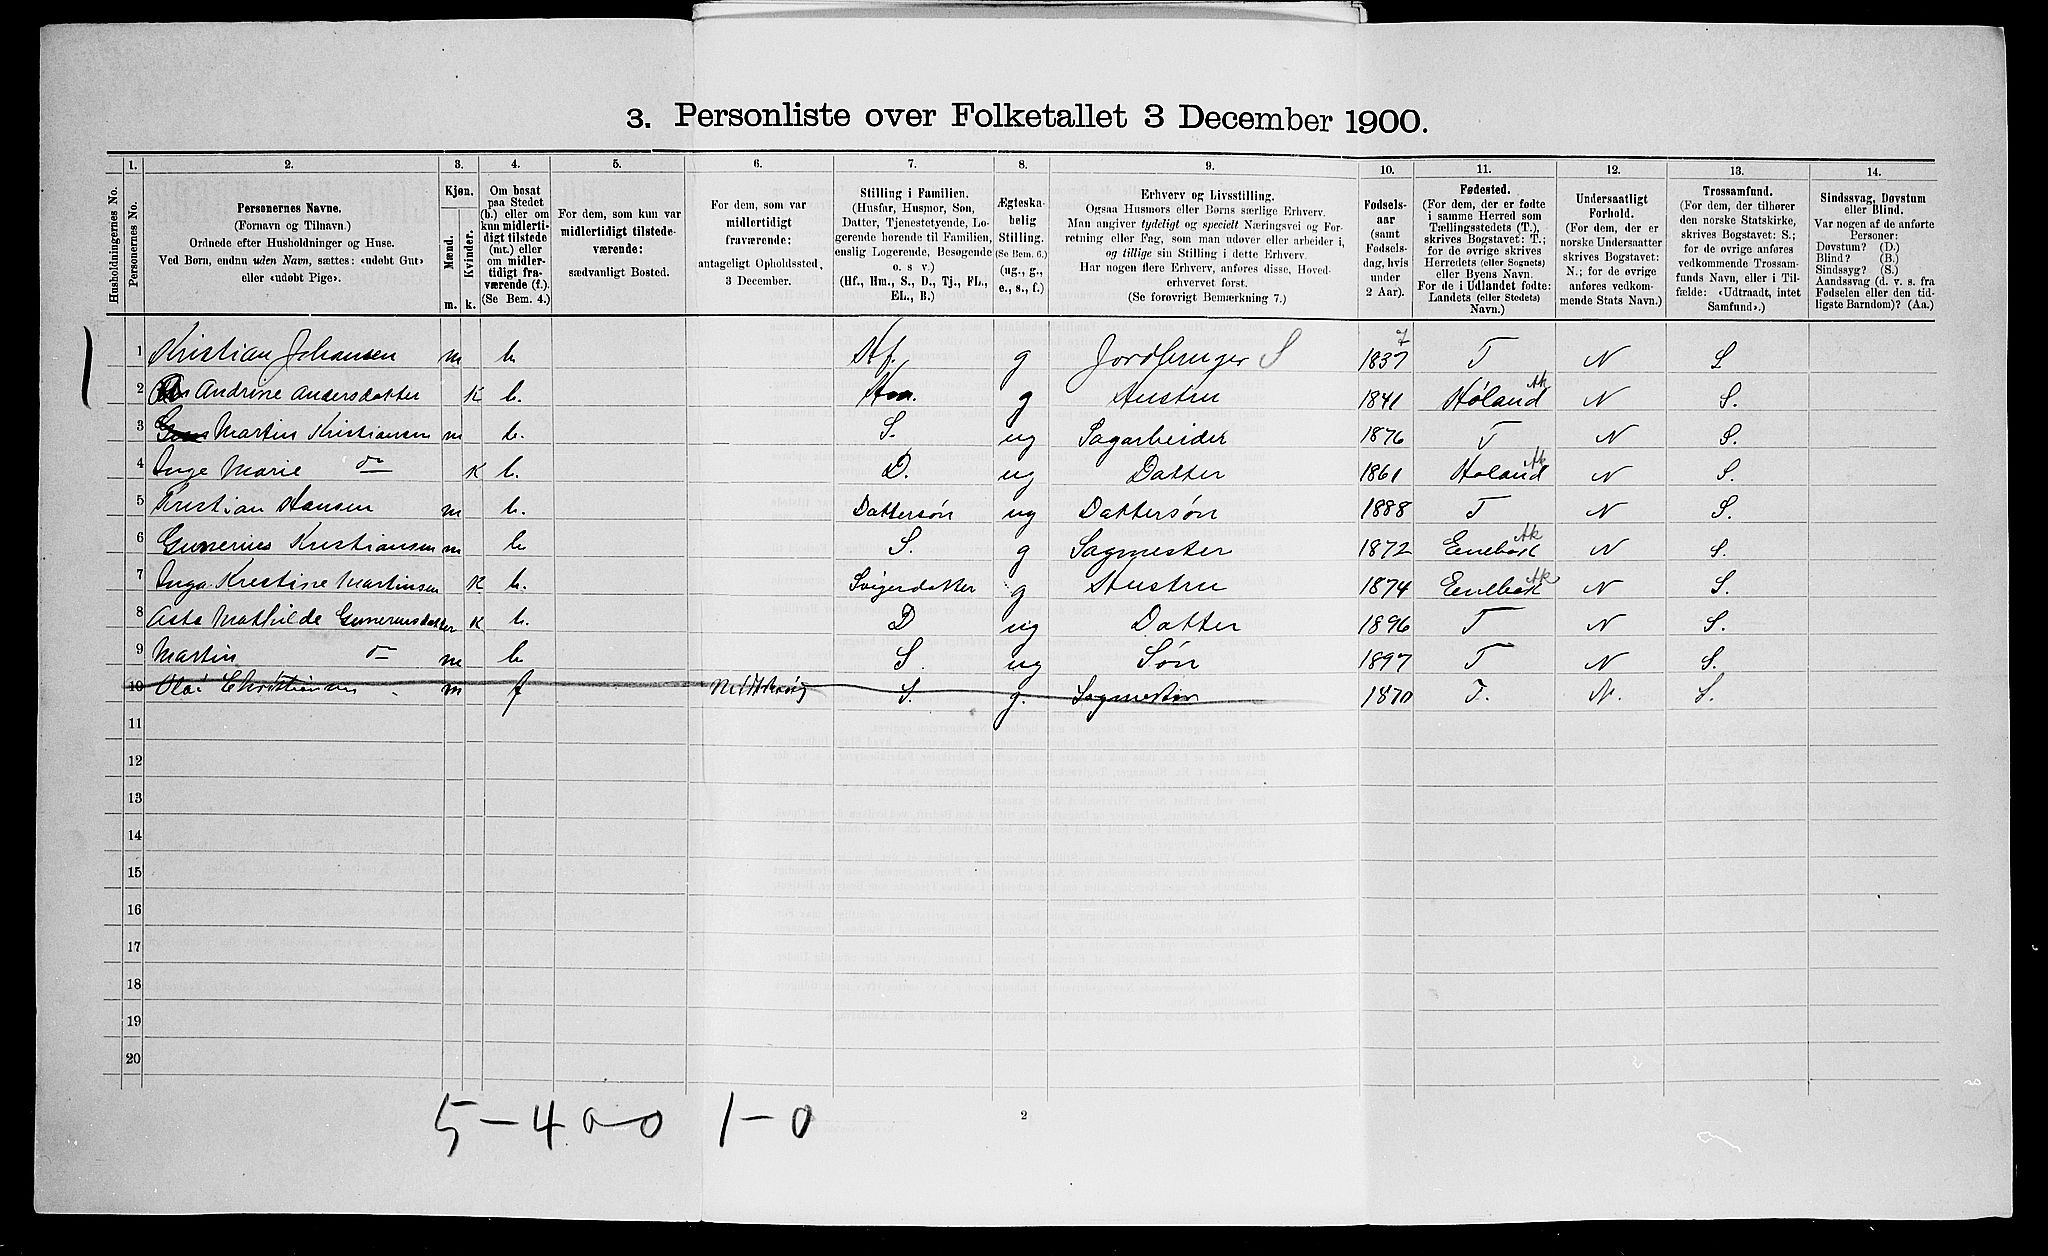 3. Personliste over Folketallet 3 December 1900.
Husholdningernes No.
1. Personernes No.
2. Personernes Navne. (Fornavn og Tilnavn.) Ordnede efter Husholdninger og Huse. Ved Børn, endnu uden Navn, sættes: «udøbt Gut» eller «udøbt Pige».
3. Kjøn. Mænd. m. Kvinder. k.
4. Om bosat paa Stedet (b.) eller om kun midlertidigt tilstede (mt.) eller om midlertidigt fraværende (f.). (Se Bem. 4.)
5. For dem, som kun var midlertidigt tilstedeværende: sædvanligt Bosted.
6. For dem, som var midlertidigt fraværende: antageligt Opholdssted, 3 December.
7. Stilling i Familien. (Husfar, Husmor, Søn, Datter, Tjenestetyende, Logerende hørende til Familien, enslig Logerende, Besøgende o. s v.) (Hf., Hm., S., D., Tj., FL., EL., B.)
8. Ægteskabelig Stilling. (Se Bem. 6.) (ug., g., e., s., f.)
9. Erhverv og Livsstilling. Ogsaa Husmors eller Børns særlige Erhverv. Man angiver tydeligt og specielt Næringsvei og Forretning eller Fag, som man udøver eller arbeider i, og tillige sin Stilling i dette Erhverv. Har nogen flere Erhverv, anføres disse, Hoved-erhvervet først. (Se forøvrigt Bemærkning 7.)
10. Fødselsaar (samt Fødselsdag, hvis under 2 Aar).
11. Fødested. (For dem, der er fødte i samme Herred som Tællingsstedets (T.), skrives Bogstavet: T.; for de øvrige skrives Herredets (eller Sognets) eller Byens Navn. For de i Udlandet fødte: Landets (eller Stedets) Navn.)
12. Undersaatligt Forhold. (For dem, der er norske Undersaatter skrives Bogstavet: N.; for de øvrige anføres vedkommende Stats Navn.)
13. Trossamfund. (For dem, der tilhører den norske Statskirke, skrives Bogstavet: S.; for de øvrige anføres vedkommende Trossamfunds Navn, eller i Tilfælde: «Udtraadt, intet Samfund».)
14. Sindssvag, Døvstum eller Blind. Var nogen af de anførte Personer: Døvstum? (D.) Blind? (B.) Sindssyg? (S.) Aandssvag (d. v. s. fra Fødselen eller den tidligste Barndom)? (Aa.)
1 Kristian Johansen m b. Hf. g Jordbruger S 1837 T N S
2 Andrine Andersdatter K b. Hm. g Hustru 1841 Høland Ak N S.
3 Martin Kristiansen m b. S. ug Sagarbeider 1876 T N S.
4 Inge Marie do K b. D. ug Datter 1861 Høland Ak N S.
5 Kristian Hansen m b. Dattersøn ug Dattersøn 1888 T N S.
6 Gunerius Kristiansen m b S. g Sagmester 1872 Enebak Ak N S.
7 Inga Kristine Martinsen K b. Svigerdatter g Hustru 1874 Enebak Ak N S.
8 Asta Mathilde Guneriusdatter K b. D ug Datter 1896 T N S.
9 Martin do m b S. ug Søn 1897 T N S.
10 Olaf Christiansen m f S. g. Sagmester 1870 T. N. S.
11
12
13
14
15
16
17
18
19
20
5-4 0-0 1-0
2